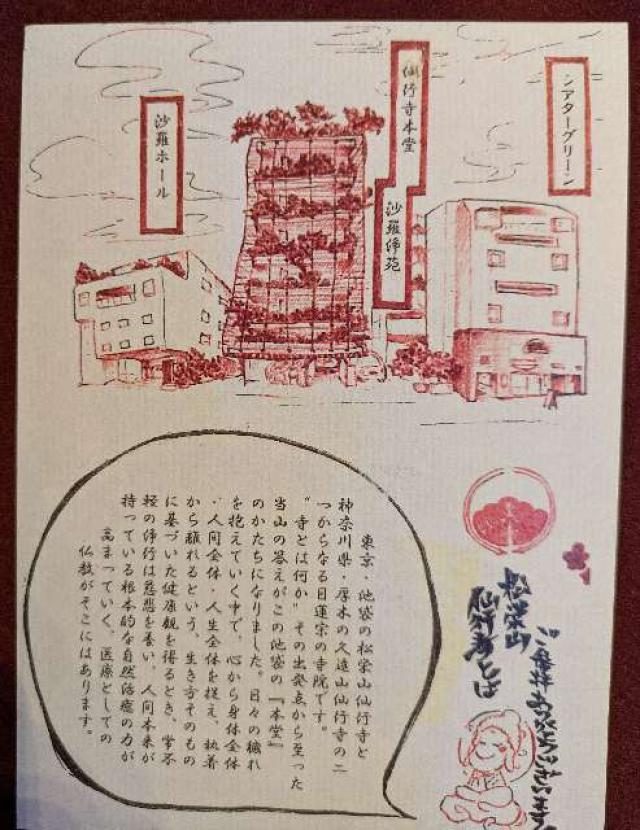 シアターグリーン
仙行寺本堂
沙羅浄苑
沙羅ホール
東京・池袋の松栄山仙行寺と
神奈川県・厚木の久遠山仙行寺の二
つからなる日蓮宗の寺院です。
"寺とは何か"その出発点から至った
当山の答えがこの池袋の『本堂』
のかたちになりました。日々の穢れ
を抱えていく中で、心から身体全体
・人間全体・人生全体を捉え、執着
から離れるという、生き方そのもの
に基づいた健康観を得るとき、常不
軽の浄行は慈悲を養い、人間本来が
持っている根本的な自然治癒の力が
高まっていく、医療としての
仏教がそこにはあります。
ご参拝ありがとうございます
松栄山
仙行寺とは